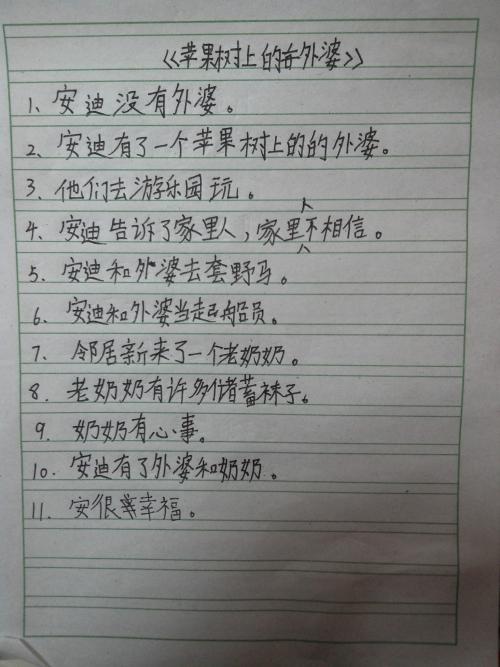 《苹果树上的外婆》
1、安迪没有外婆。
2、安迪有了一个苹果树上的的外婆。
3、他们去游乐园玩。
4、安迪告诉了家里人，家里人不相信。
5、安迪和外婆去套野马。
6、安迪和外婆当起船员。
7、邻居新来了一个老奶奶。
8、老奶奶有许多储蓄袜子。
9、奶奶有心事。
10、安迪有了外婆和奶奶。
11、安很幸福。